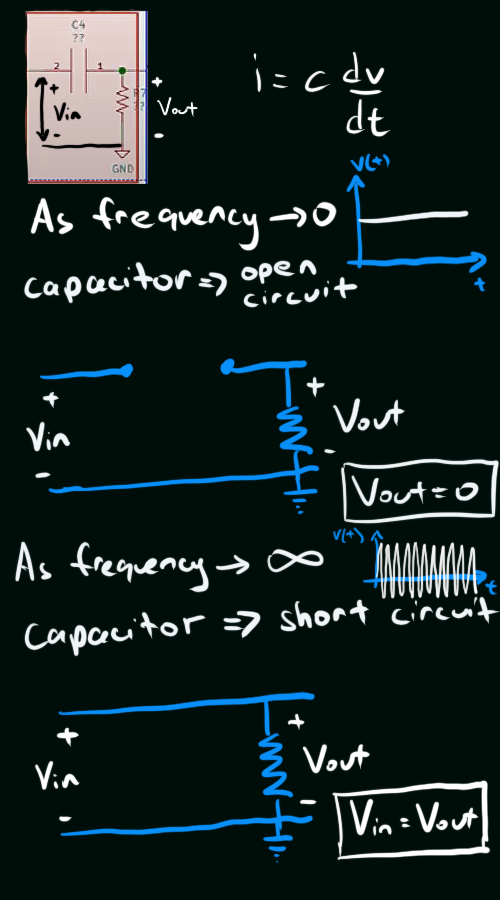 C4
??
2 1
+ R?
+ Vin ?? Vout
- -
GND
i = c dv
dt
v(t)
As frequency → 0
capacitor ⇒ open
circuit
t
+ +
Vin Vout
- -
Vout = 0
As frequency → ∞
v(t)
t
capacitor ⇒ short circuit
+ +
Vin Vout
- -
Vin = Vout